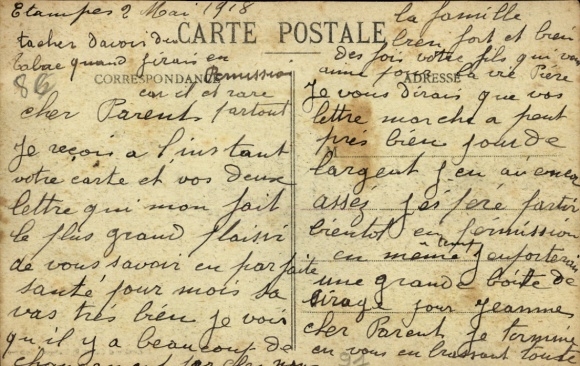 Etampes 2 Mai 1918
CARTE POSTALE
tacher davoir du
tabac quand jirais en
permission
CORRESPONDANCE
car il et rare
partout
86
cher Parent
Je reçois a l'instant
votre carte et vos deux
lettre qui mon fait
le plus grand plaisir
de vous savoir en parfaite
santé pour mois sa
vas très bien je vois
qu'il y a beaucoup de
ADRESSE
Je vous dirais que vos
lettre marche a peut
près bien pour de
largent jen ai encor
assés jespéré partir
bientot en permission
en même temp jenporterai
une grande boite de
cirage pour jeanne
cher Parent je termine
en vous en brassant toute
la famille
bien fort et bien
des fois votre fils qui vous
aime pour la vie Piere